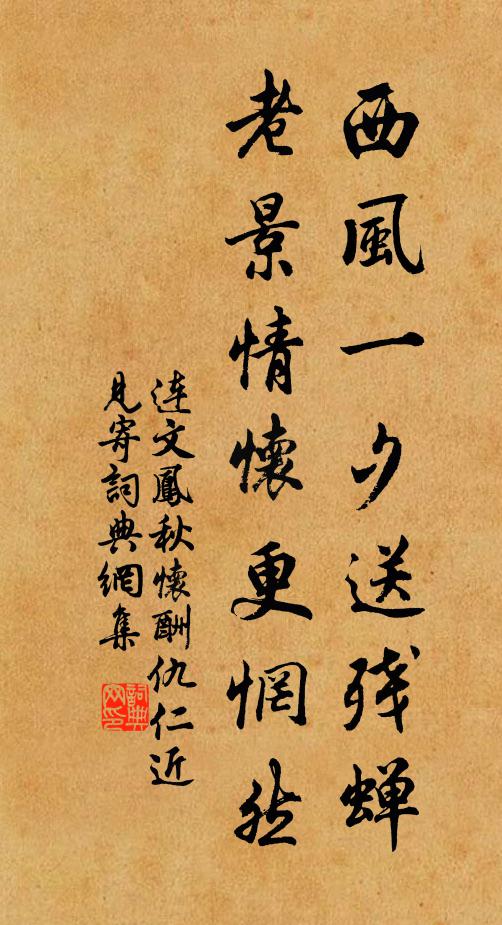 西風一夕送残蝉
老景情懷更惘然
连文鳳秋懷酬仇仁近
見寄詞典網集
詞典
网印